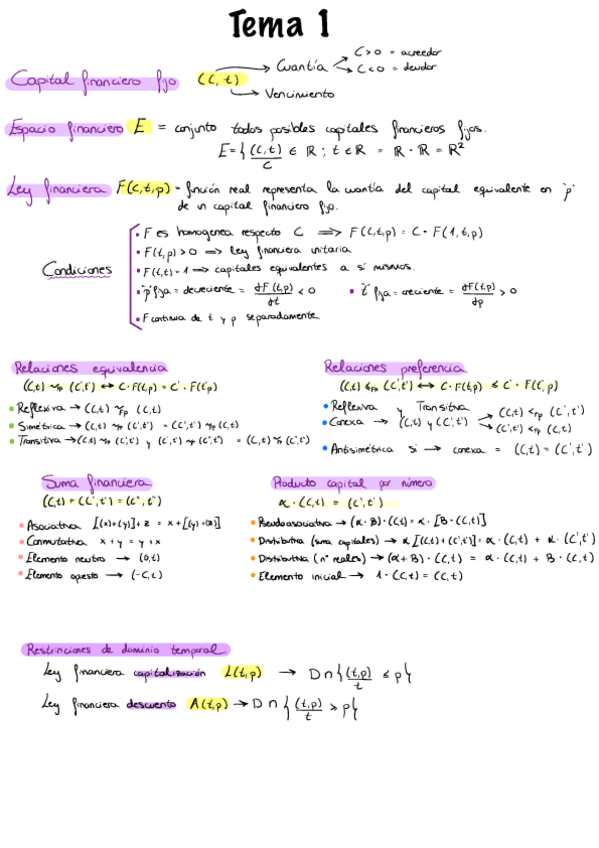 Tema 1
Capital financiero fijo (C, t) → Cuantía → C>0 = acreedor
→ C<0 = deudor
→ Vencimiento
Espacio financiero E = conjunto todos posibles capitales financieros fijos.
E={ (C,t)/C ∈ ℝ ; t ∈ ℝ = ℝ · ℝ = ℝ²
Ley financiera F(C,t,p) = función real representa la cuantía del capital equivalente en "p"
de un capital financiero fijo.
Condiciones
• F es homogenea respecto C ⟹ F(C,t,p) = C · F(1,t,p)
• F(t,p) > 0 ⟹ ley financiera unitaria
• F(t,t) = 1 ⟹ capitales equivalentes a sí mismos.
• "p" fija = decreciente = dF(t,p)/dt < 0 • "t" fija = creciente = dF(t,p)/dp > 0
• F continua de t y p separadamente
Relaciones equivalencia
(C,t) ~p (C',t') ↔ C·F(t,p) = C'·F(t',p)
• Reflexiva → (C,t) ~Fp (C,t)
• Simétrica → (C,t) ~p (C',t') = (C',t') ~p (C,t)
• Transitiva → (C,t) ~p (C',t') y (C',t') ~p (C'',t'') = (C,t) ~p (C'',t'')
Relaciones preferencia
(C,t) ≤Fp (C',t') ↔ C·F(t,p) ≤ C'·F(t',p)
• Reflexiva y Transitiva
• Conexa → (C,t) y (C',t') → (C,t) <Fp (C',t')
→ (C',t') <Fp (C,t)
• Antisimétrica si → conexa = (C,t) = (C',t')
Suma financiera
(C,t) + (C',t') = (C'',t'')
• Asociativa [(x)+(y)]+z = x+[(y)+(z)]
• Conmutativa x + y = y + x
• Elemento neutro → (0,t)
• Elemento opuesto → (-C,t)
Producto capital por número
α · (C,t) = (C',t')
• Pseudoasociativa → (α·B)·(C,t) = α·[B·(C,t)]
• Distributiva (suma capitales) → α[(C,t)+(C',t')] = α·(C,t) + α·(C',t')
• Distributiva (nº reales) → (α+B)·(C,t) = α·(C,t) + B·(C,t)
• Elemento inicial → 1·(C,t) = (C,t)
Restricciones de dominio temporal
Ley financiera capitalización L(t,p) → D∩{ (t,p)/t ≤ p}
Ley financiera descuento A(t,p) → D∩{ (t,p)/t > p}